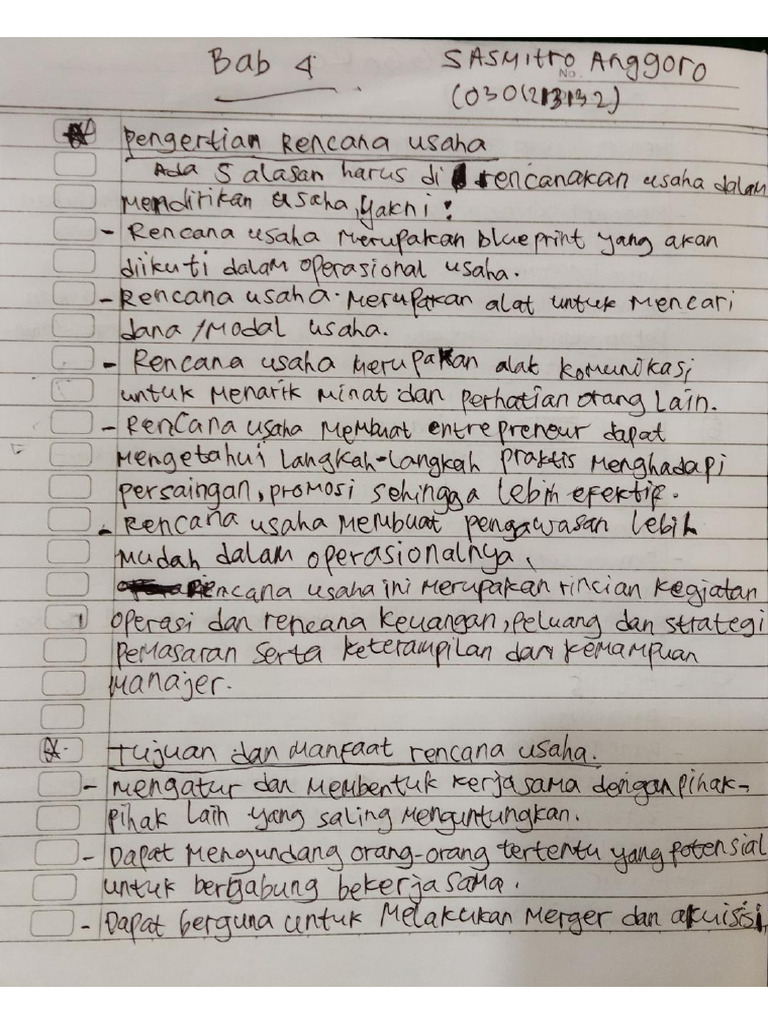 Bab 4
SASMitro Anggoro
No.
(0301213132)
Pengertian Rencana usaha
Ada 5 alasan harus di rencanakan usaha dalam
Mendirikan usaha, yakni :
- Rencana usaha Merupakan blueprint yang akan
diikuti dalam operasional usaha.
- Rencana usaha Merupakan alat untuk Mencari
dana /Modal usaha.
- Rencana usaha Merupakan alat komunikasi
untuk Menarik Minat dan perhatian orang Lain.
- Rencana usaha Membuat entrepreneur dapat
Mengetahui Langkah-Langkah praktis Menghadapi
persaingan, promosi sehingga Lebih efektif.
- Rencana usaha Membuat pengawasan Lebih
Mudah dalam operasionalnya,
Rencana usaha ini Merupakan rincian kegiatan
operasi dan rencana keuangan, peluang dan strategi
peMasaran serta keterampilan dan keMampuan
Manajer.
Tujuan dan Manfaat rencana usaha.
- Mengatur dan Membentuk kerjasama dengan pihak-
pihak Lain yang saling Menguntungkan.
- Dapat Mengundang orang-orang tertentu yang potensial
untuk bergabung bekerja sama.
- Dapat berguna untuk Melakukan Merger dan akuisisi,